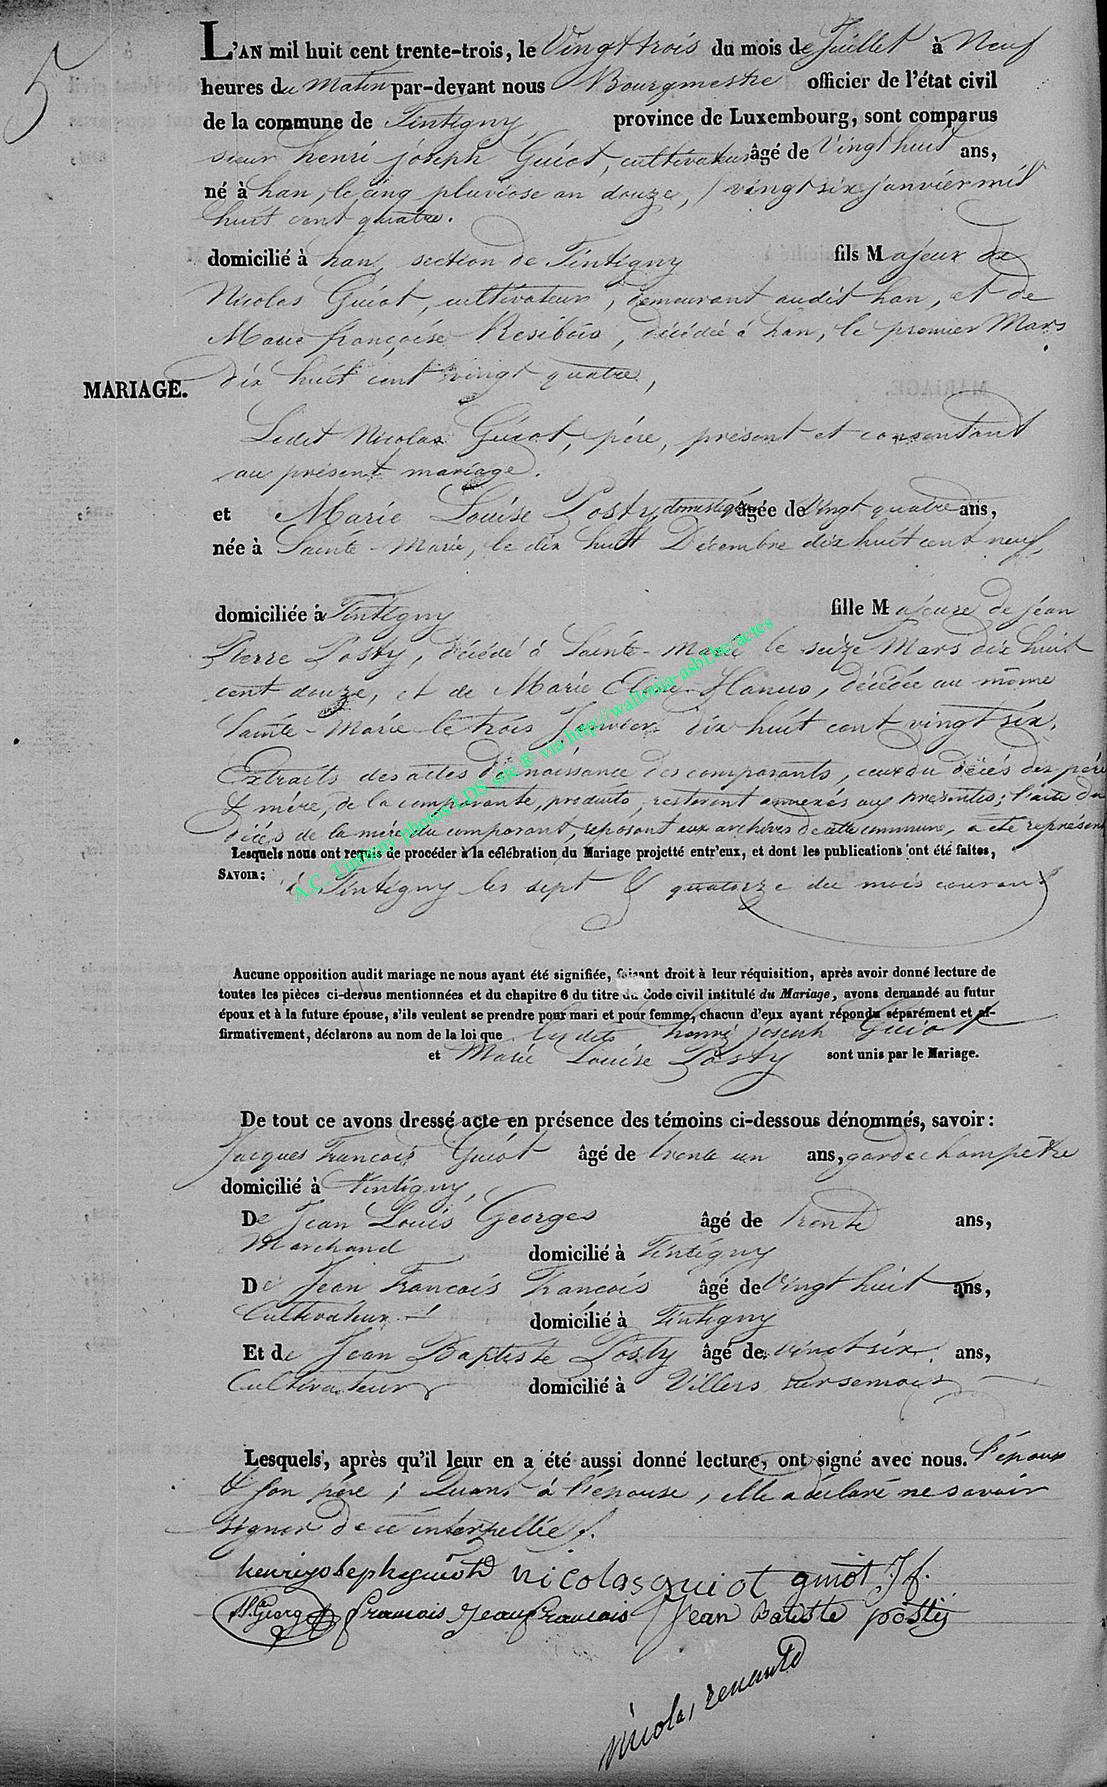 5
L'AN mil huit cent trente-trois, le Vingt trois du mois de Juillet à Neuf
heures du Matin par-devant nous Bourgmestre officier de l'état civil
de la commune de Tintigny, province de Luxembourg, sont comparus
sieur henri joseph Guiot, cultivateur âgé de Vingt huit ans,
né à han, le cinq pluviose an douze, / vingt six janvier mil
huit cent quatre.
domicilié à han, section de Tintigny fils Majeur de
Nicolas Guiot, cultivateur, demeurant audit han, et de
Marie françoise Resibois, décédée à han, le premier Mars
dix huit cent vingt quatre,
MARIAGE.
Ledit Nicolas Guiot, père, présent et consentant
au présent mariage.
et Marie Louise Posty, domestique âgée de Vingt quatre ans,
née à Sainte-Marie, le dix huit Décembre dix huit cent neuf,
domiciliée à Tintigny fille Majeure de jean
Pierre Posty, décédé à Sainte-Marie le seize Mars dix huit
cent douze, et de Marie Elise Hanus, décédée au même
Sainte-Marie le trois Janvier dix huit cent vingt six.
Extraits des actes de naissance des comparants, ceux du décès des père
& mère, de la comparante, produits, resteront annexés aux présentes; l'acte du
décès de la mère du comparant, reposant aux archives de cette commune, a été représenté
Lesquels nous ont requis de procéder à la célébration du Mariage projetté entr'eux, et dont les publications ont été faites,
SAVOIR: à Tintigny les sept & quatorze du mois courant
Aucune opposition audit mariage ne nous ayant été signifiée, faisant droit à leur réquisition, après avoir donné lecture de
toutes les pièces ci-dessus mentionnées et du chapitre 6 du titre du Code civil intitulé du Mariage, avons demandé au futur
époux et à la future épouse, s'ils veulent se prendre pour mari et pour femme, chacun d'eux ayant répondu séparément et af-
firmativement, déclarons au nom de la loi que lesdits henri joseph Guiot
et Marie Louise Posty sont unis par le Mariage.
De tout ce avons dressé acte en présence des témoins ci-dessous dénommés, savoir:
Jacques François Guiot âgé de trente un ans, garde champêtre
domicilié à Tintigny,
De Jean Louis Georges âgé de trente ans,
Marchand domicilié à Tintigny
De Jean François François âgé de Vingt huit ans,
Cultivateur domicilié à Tintigny
Et de Jean Baptiste Posty âgé de vingt six ans,
Cultivateur domicilié à Villers sur semois
Lesquels, après qu'il leur en a été aussi donné lecture, ont signé avec nous. l'époux
& son père; Quant à l'épouse, elle a déclaré ne savoir
signer de ce interpellée.
henri joseph guiot nicolas guiot guiot Jf.
Georges françois jean francois Jean Batiste posty
nicolas renauld
A.C. Tintigny photos LDS site ® via http://wallonia-asbl.be/actes